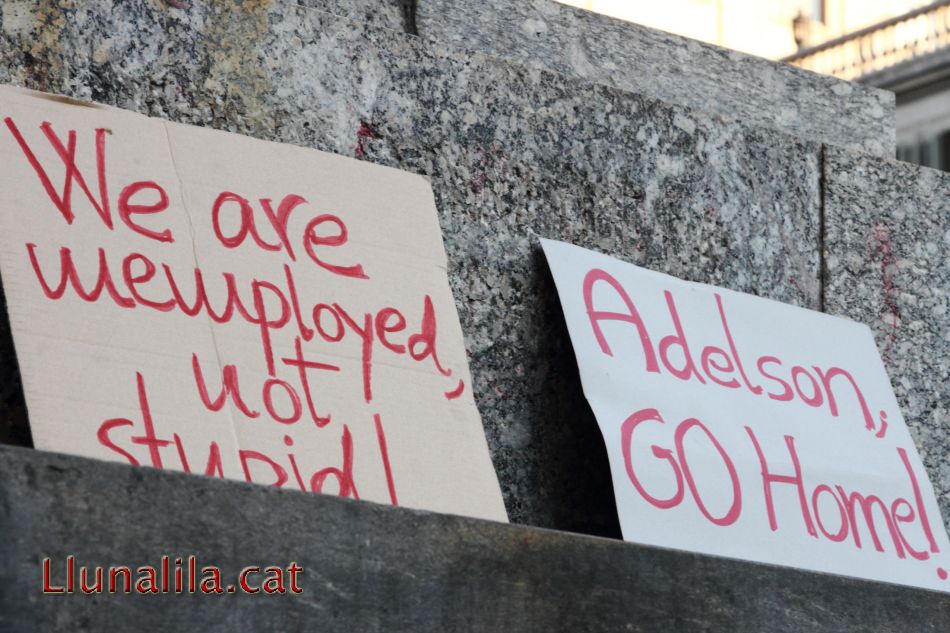 We are
wewployed,
not
stupid!
Adelson,
GO Home!
Llunalila.cat